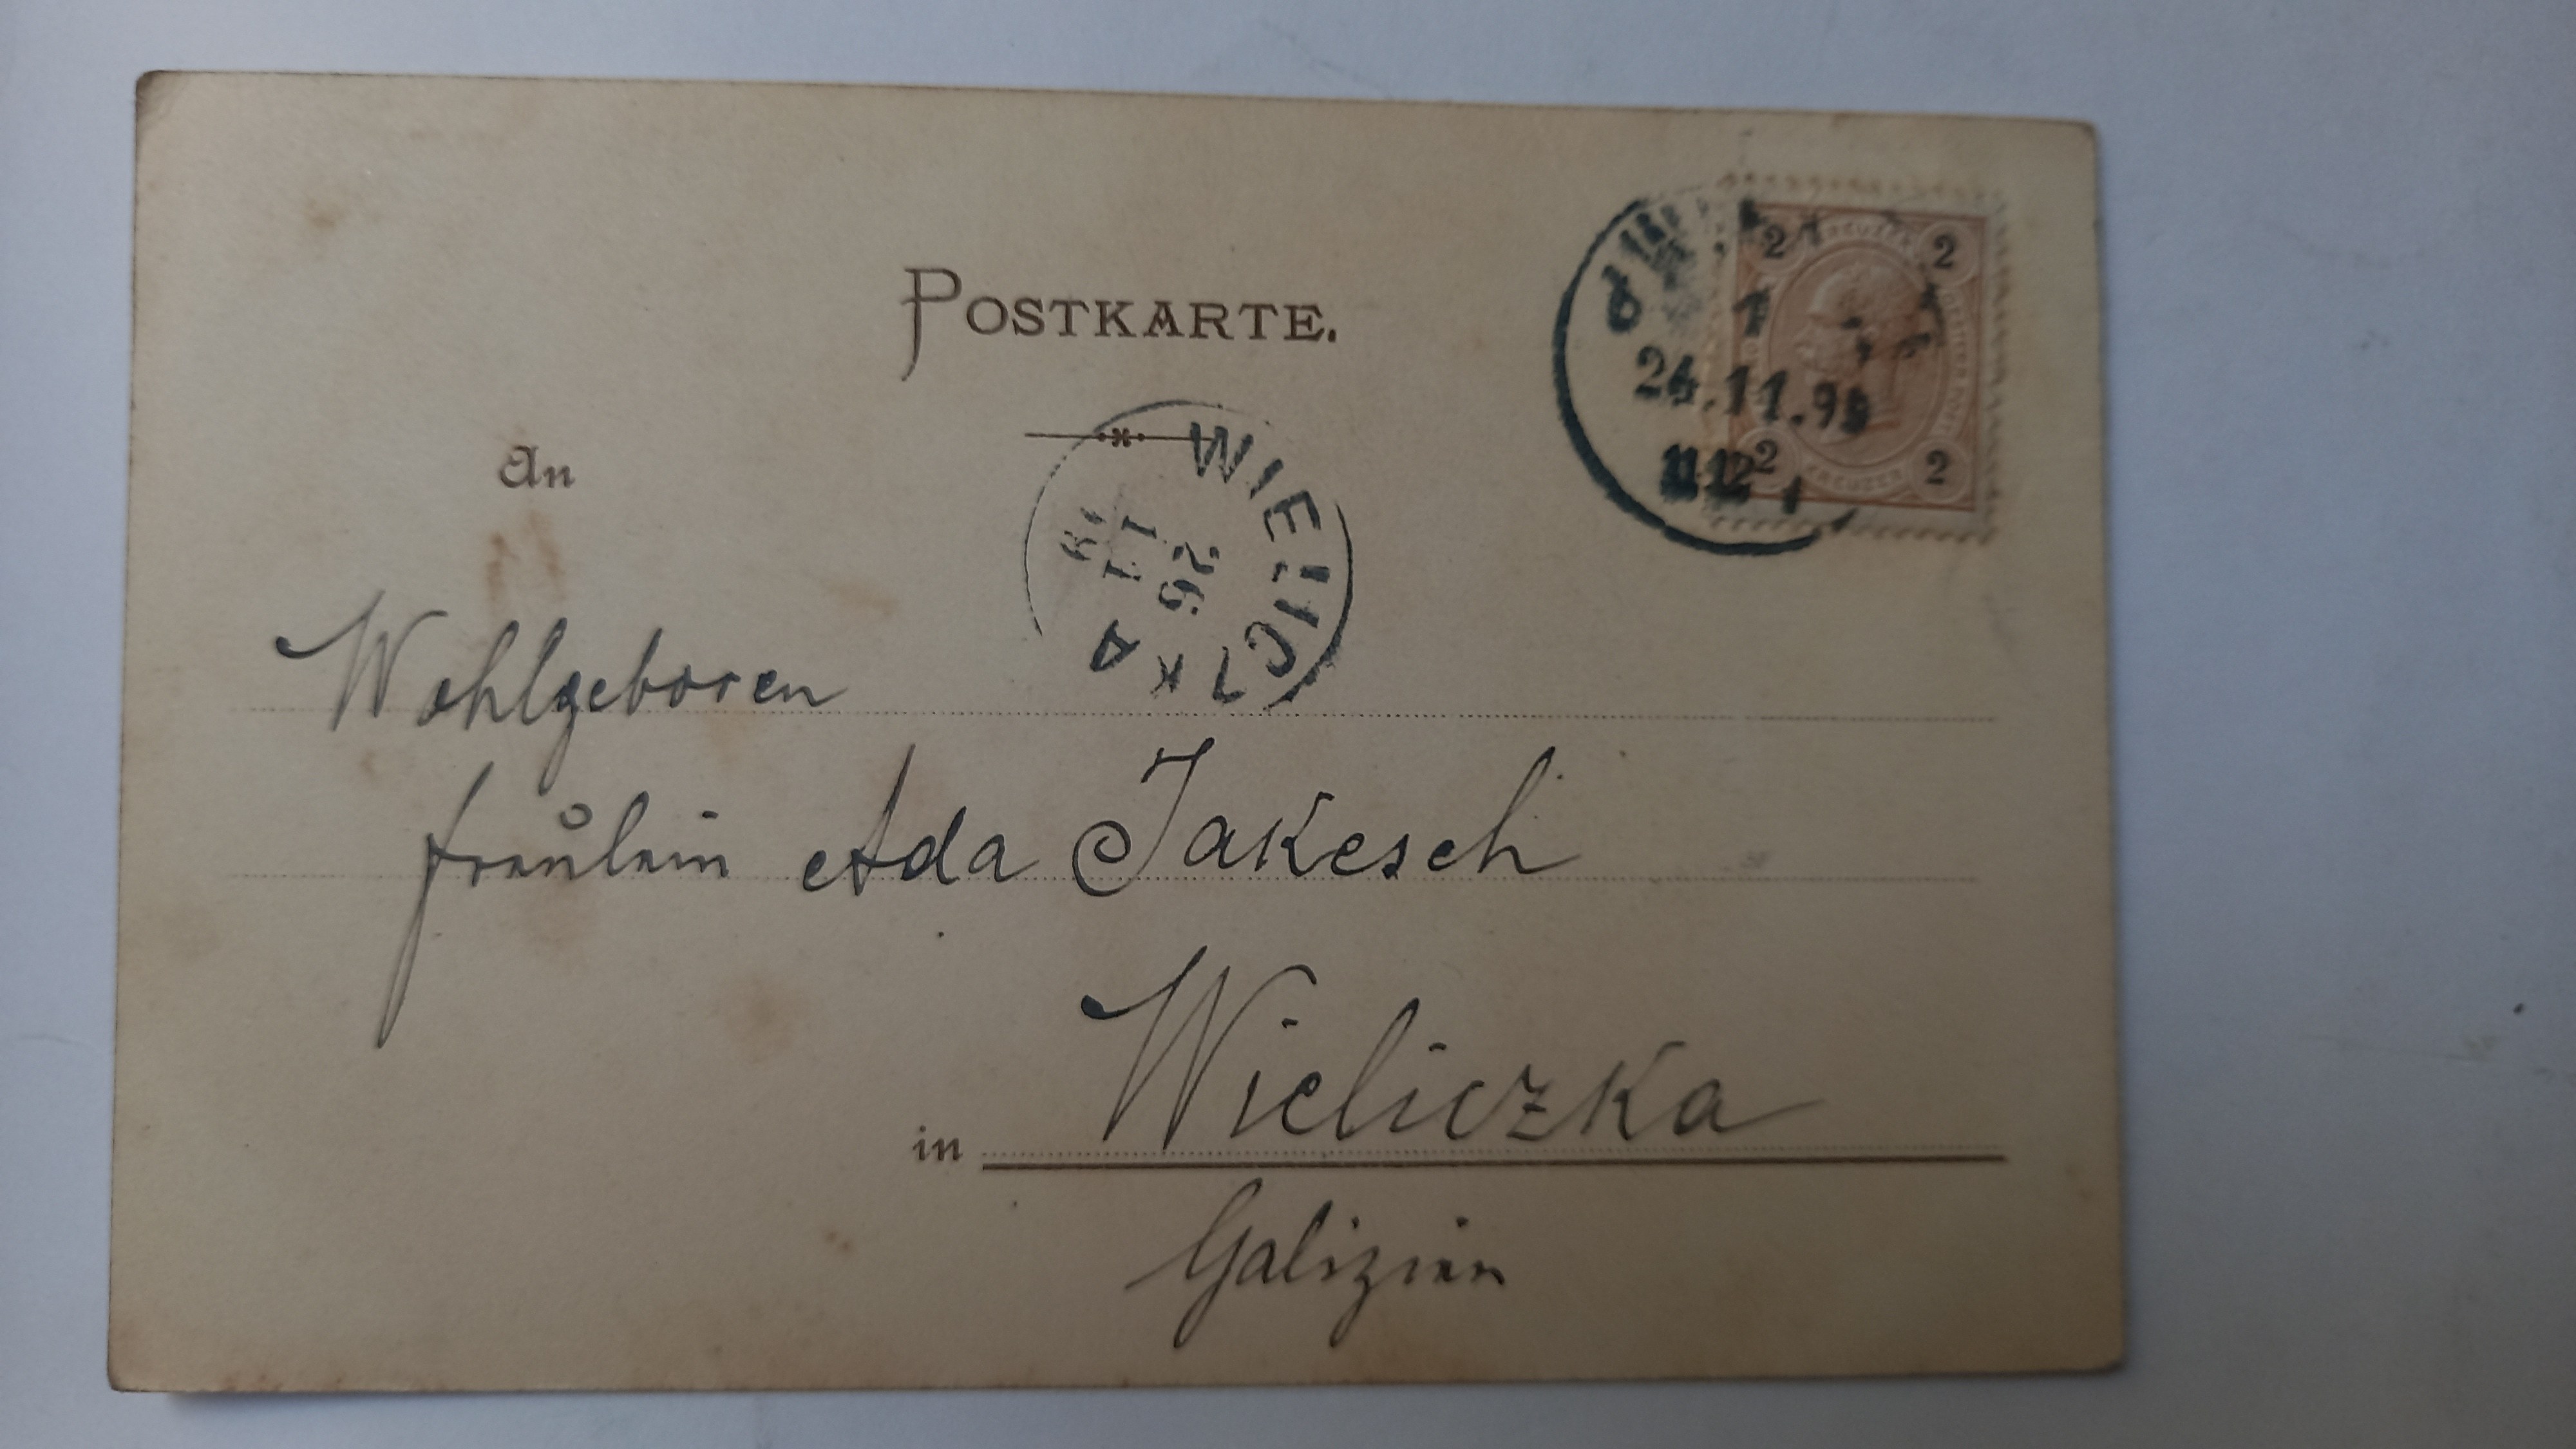 POSTKARTE.
An
2 KREUZER 2
1
24.11.9
11 12
2 KREUZER 2
WIELICZKA
26
11
Wohlgeboren
Fräulein Ada Jakesch
in Wieliczka
Galizien